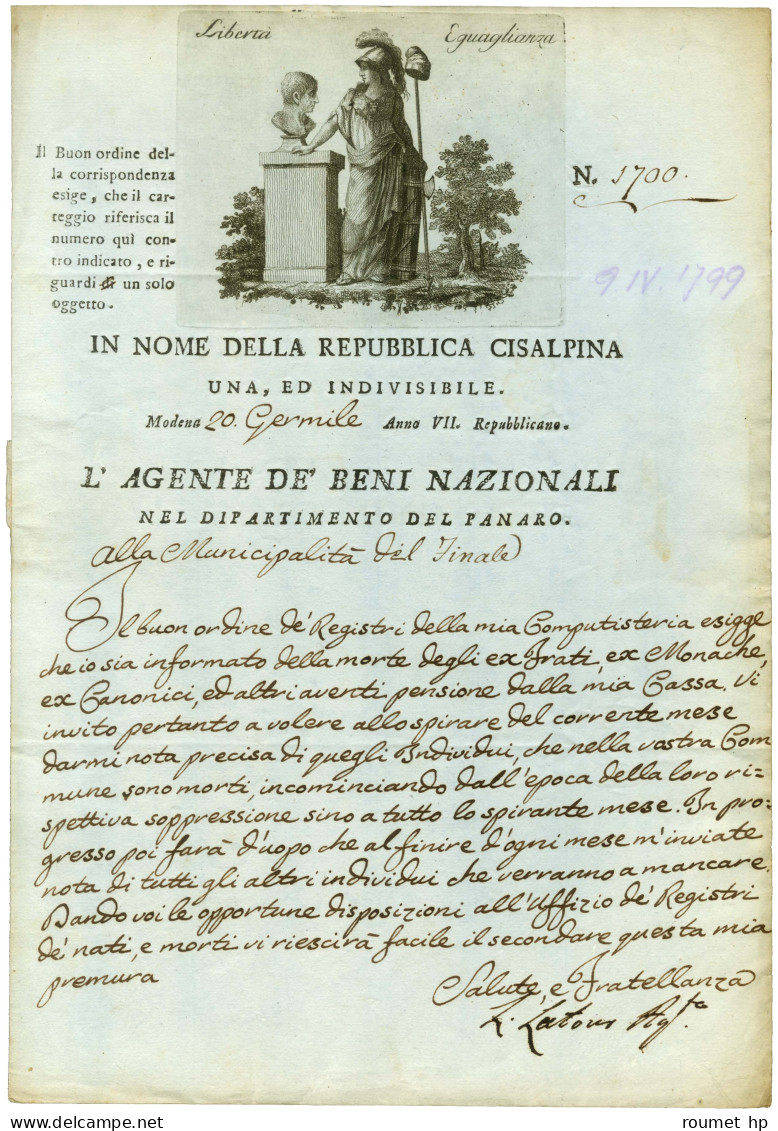 Libertà Eguaglianza
Il Buon ordine del-
la corrispondenza
esige, che il car-
teggio riferisca il
numero quì con-
tro indicato, e ri-
guardi un solo
oggetto.
N. 1700.
9 IV. 1799
IN NOME DELLA REPUBBLICA CISALPINA
UNA, ED INDIVISIBILE.
Modena 20. Germile Anno VII. Repubblicano.
L' AGENTE DE' BENI NAZIONALI
NEL DIPARTIMENTO DEL PANARO.
Alla Municipalità del Finale
Il buon ordine de' Registri della mia Computisteria esigge
che io sia informato della morte degli ex Frati, ex Monache,
ex Canonici, ed altri aventi pensione dalla mia Cassa. Vi
invito pertanto a volere allo spirare del corrente mese
darmi nota precisa di quegli Individui, che nella vostra Com
mune sono morti, incominciando dall'epoca della loro ri-
spettiva soppressione sino a tutto lo spirante mese. In pro-
gresso poi farà d'uopo che al finire d'ogni mese m'inviate
nota di tutti gli altri individui che verranno a mancare.
Dando voi le opportune disposizioni all'Uffizio de' Registri
de' nati, e morti vi riescirà facile il secondare questa mia
premura
Salute, e Fratellanza
L. Latour Agte
roumet hp